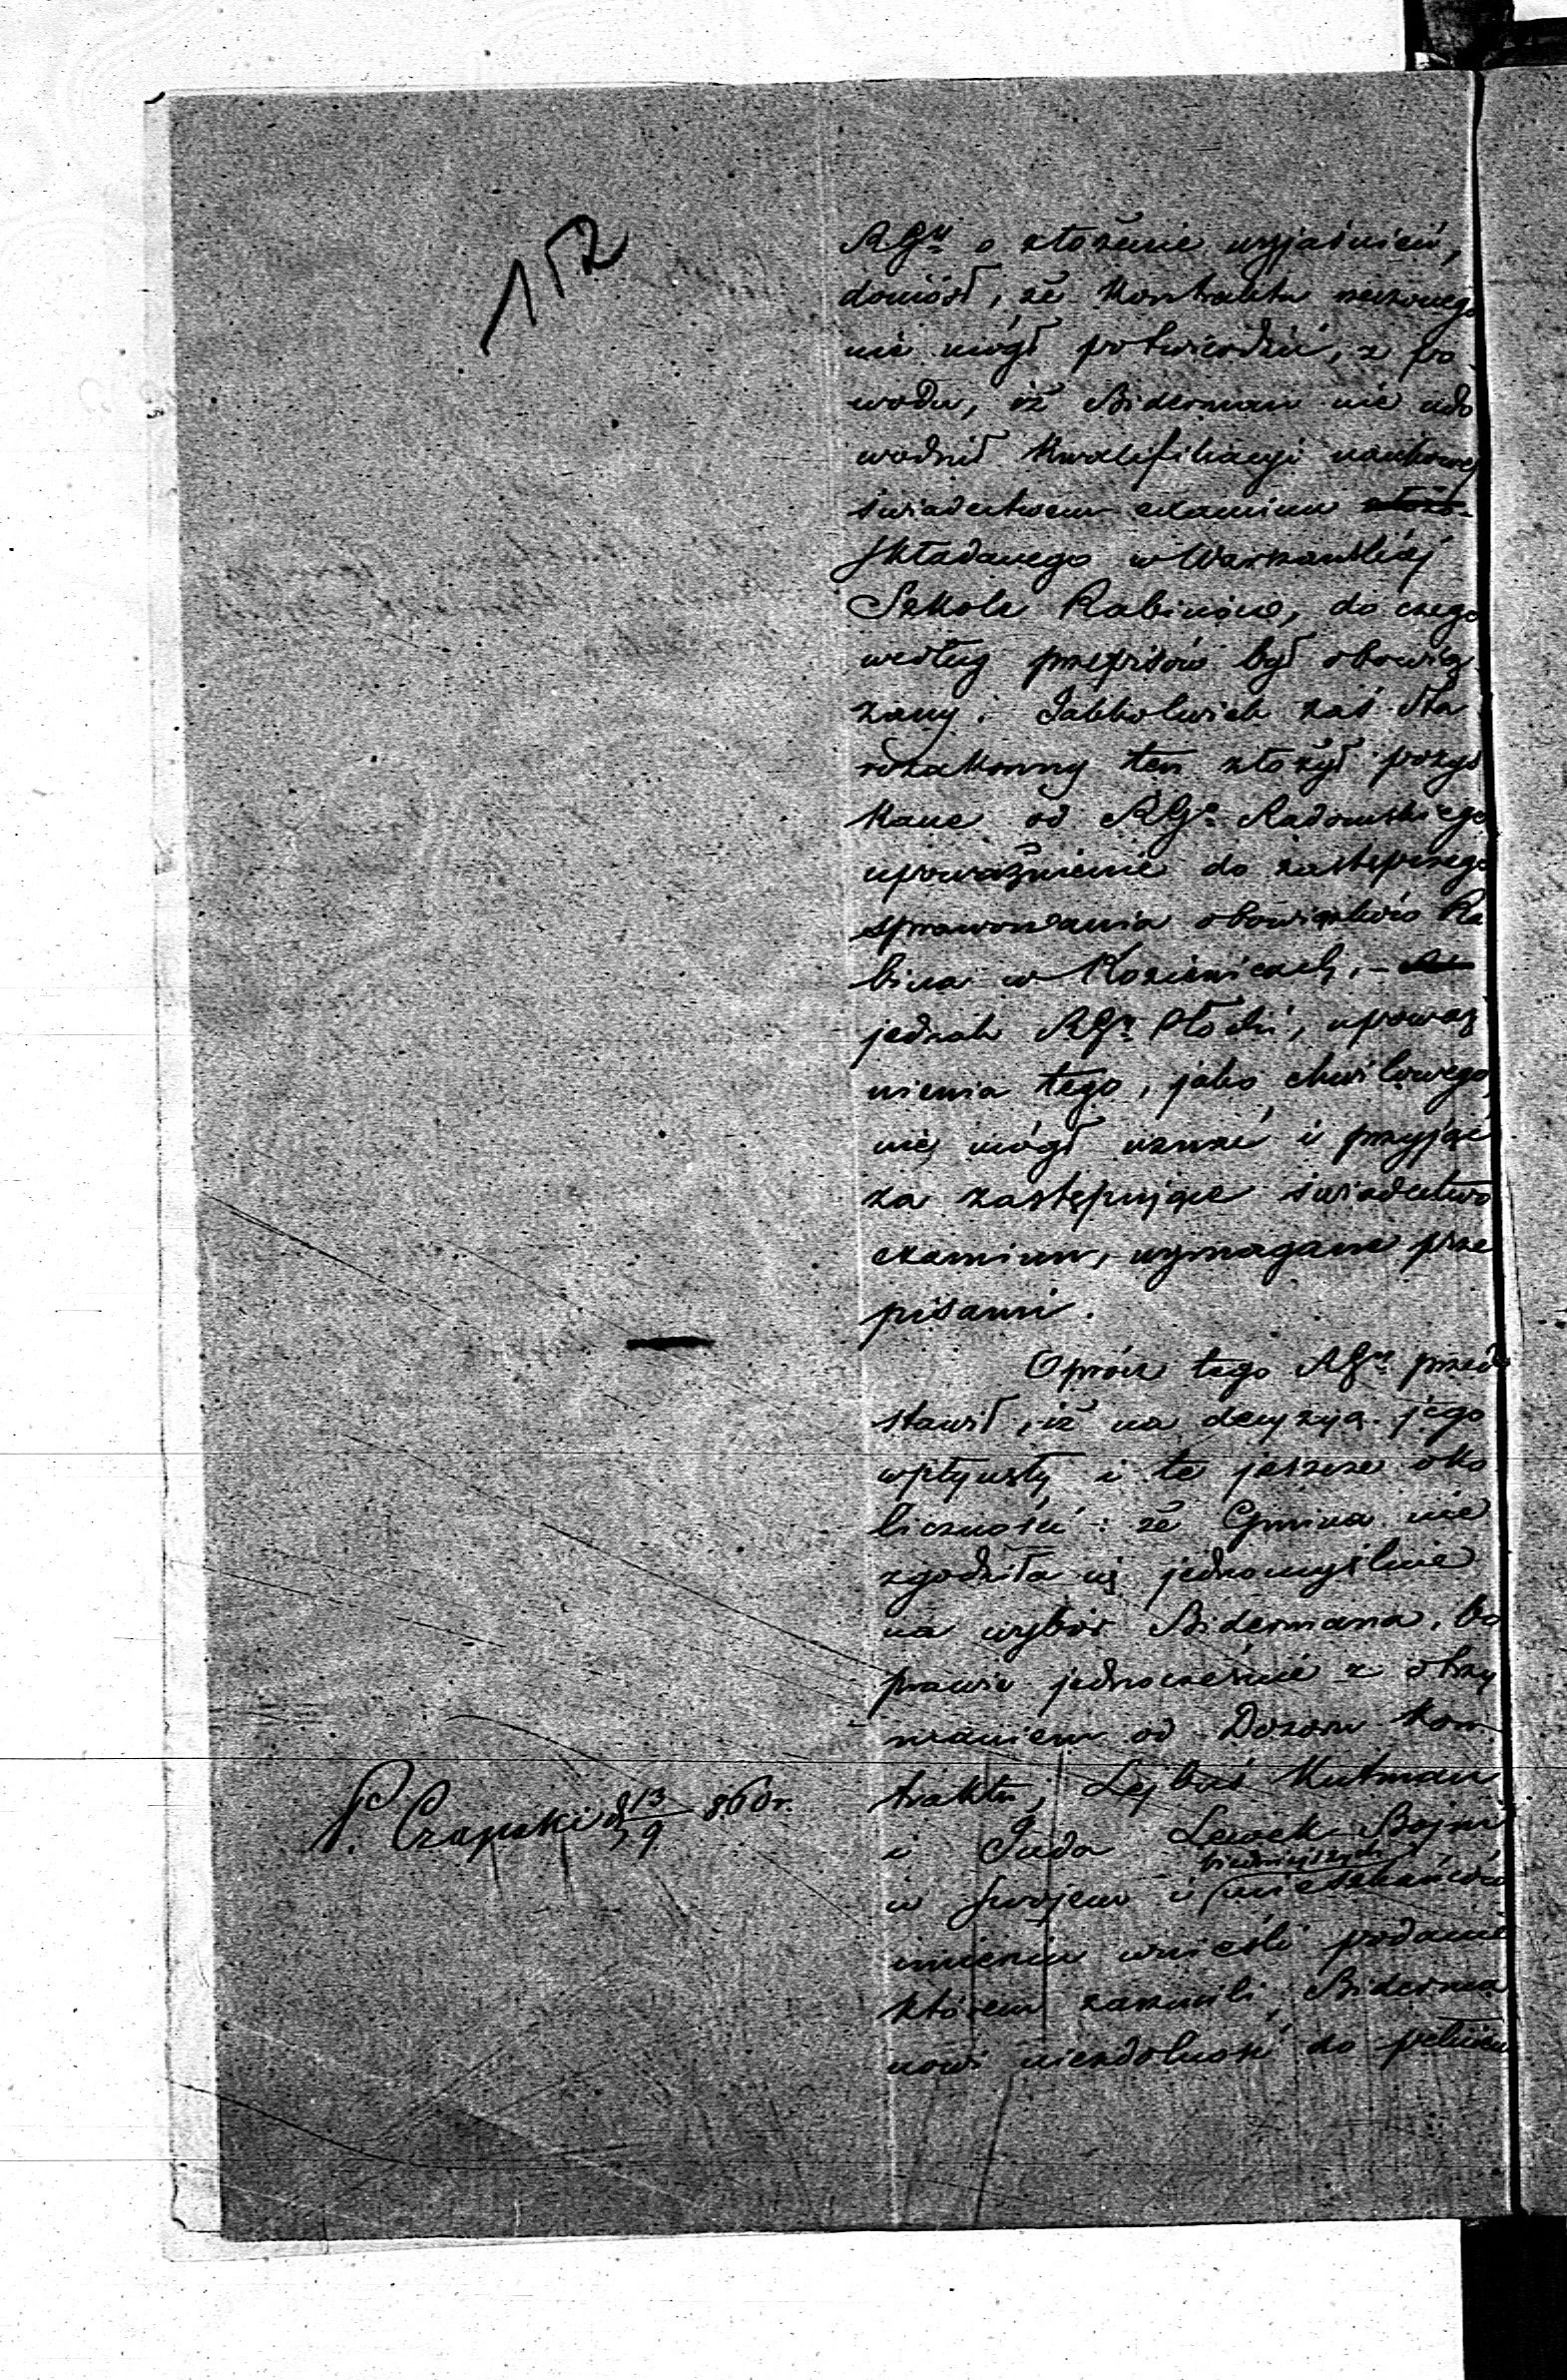 152
RGu o złożenie wyjaśnień,
doniósł, że Kontraktu rzeczonego
nie mógł potwierdzić, z po
wodu, iż Biderman nie udo
wodnił Kwalifikacyi naukowej
świadectwem examinu
składanego w Warszawskiéj
Szkole Rabinów, do czego
według przepisów był obowią
zany. Jakkolwiek zaś Sta
rozakonny ten złożył pozys
kane od RGo Radomskiego
upoważnienie do zastępczego
sprawowania obowiązków Ra
bina w Kozienicach, -
jednak RGr Płocki, upoważ
nienia tego, jako chwilowego,
nie mógł uznać i przyjąć
za zastępujące świadectwo
examinu, wymagane prze
pisami.
Oprócz tego RGr przed
stawił, iż na decyzyą jego
wpłynęły i te jeszcze oko
liczności: że Gmina nie
zgodziła się jednomyślnie
na wybór Bidermana, bo
prawie jednocześnie z otrzy
maniem od Dozoru Kon
traktu, Lejbuś Kutman
i Juda Lewek Bojm
w swojem i mieszkańców
imieniu wnieśli podanie
którem zarzucili Biderma
nowi niezdolność do pełnien
P. Czapski d 13/9 860 r.